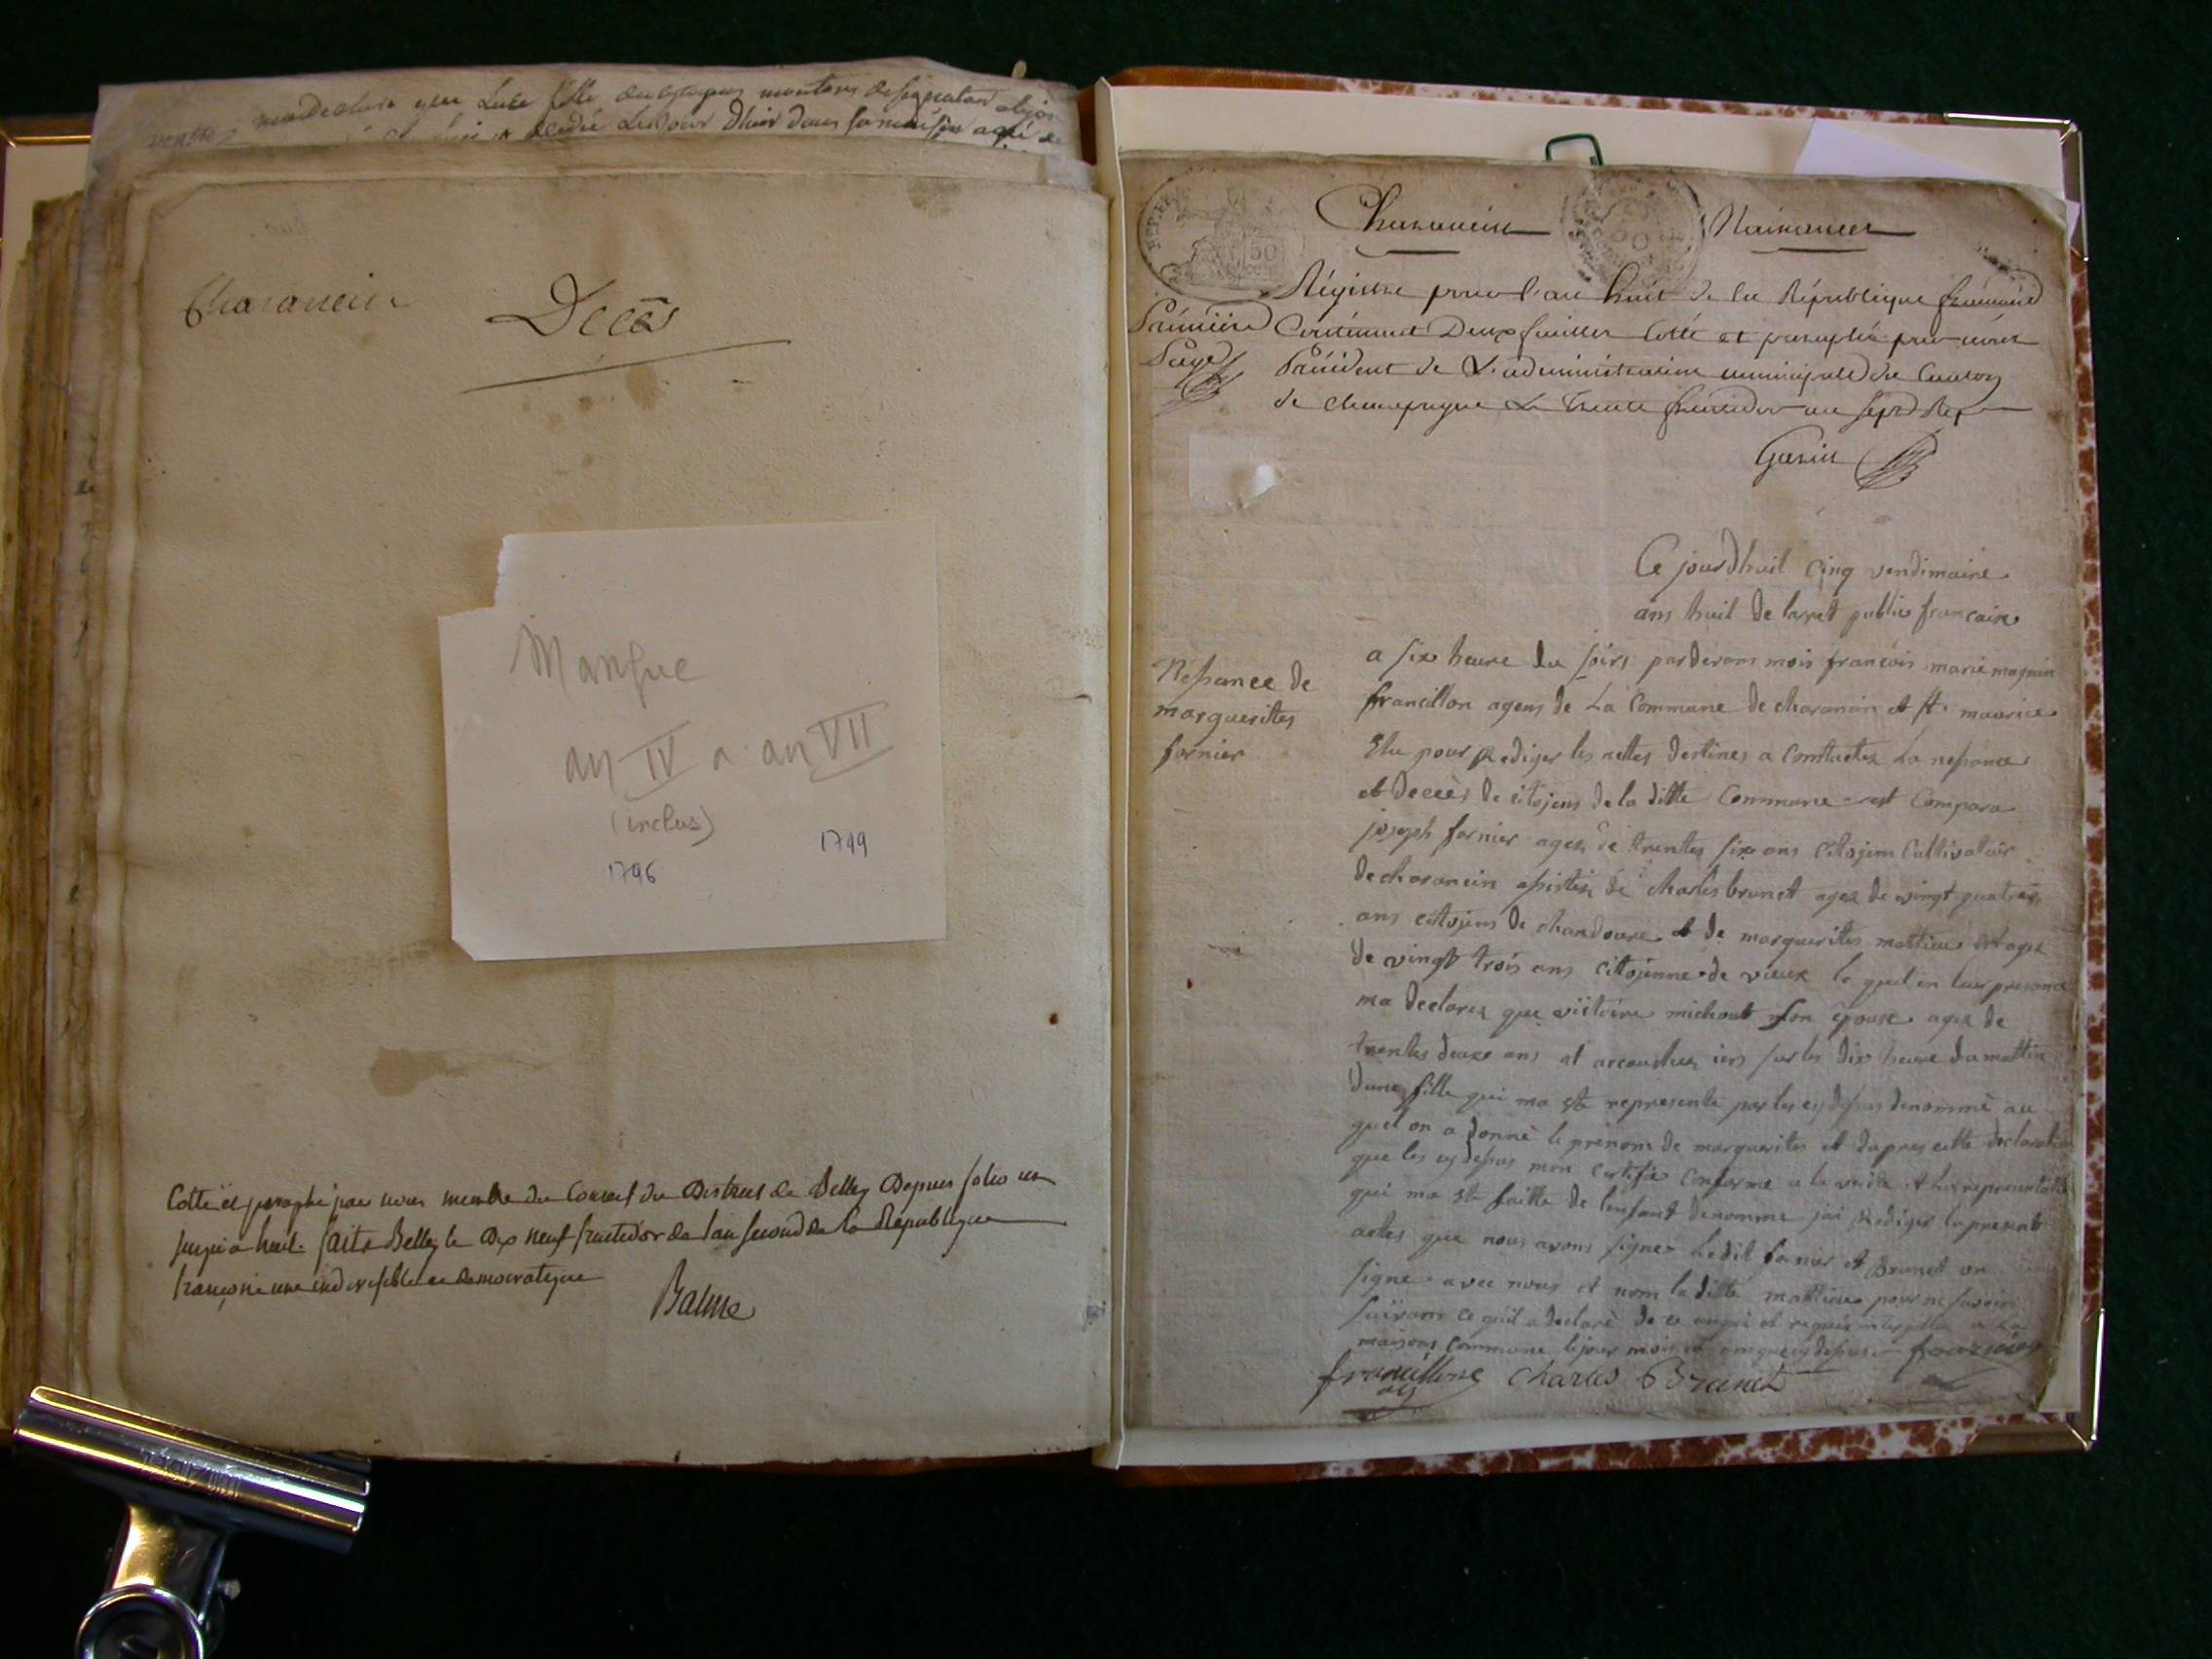 ma Declare que Luse fille du
decedée Le Jour Dhier dans sa maison agé de
Charancin
Decès
Manque
an IV a an VII
(inclus)
1796 1799
Cotté et paraphé par nous membre du Conseil du District de Belley Depuis folio un
jusqu'a huit. fait a Belley le Dix neuf fructidor de lan second de la Republique
françoise une indivisible et democratique
Balme
REP. FRA
50
cent
Charancin Naissances
Régistre pour l'an huit de la République française
Prémiére
Page
Contenant Deux feuilles Cotté et paraphé par nous
Président de L'administration municipale du Canton
de champagne Le trente fructidor an sept Rep
Gosin
Ce jourdhuit Cinq vendimaire
ans huit de larret publis francaise
Nessance de
marguerittes
fornier
a six heure du soirs pardevans mois francois marie magnin
francillon agens de La Commune de charancin et st. maurice
Elu pour Rediger les acttes destines a Conttacter La nessance
et decès de citojens de la ditte Commune est Compara
joseph fornier agez de trentes six ans Citojens Cultivatair
de charancin assistez de charles brunet agez de vingt quatres
ans citojens de chandoure et de marguerittes mattieu agez
de vingt trois ans citojenne de vieux le quel en leur presance
ma declarez que victoire michout son epouse agez de
trentes deuxe ans et accouchez iers sur les dix heure du mattin
dune fille qui ma ete represente par les cy desus denommè au
quel on a donnè le prenom de marguerites et dapres cette declaration
que les cy desus mon certifie conforme a la verite et la representation
qui ma ete faitte de lenfant denomme jai Rediger le present
actes que nous avons signer Ledit fornier et Brunet on
signe avec nous et nom la ditte mattieu pour ne savoir
suivans ce quil a declarè de ce enquis et requis a La
maisons commune le jour mois et ans que cy desus fournier
francillone Charles Brunet
ag